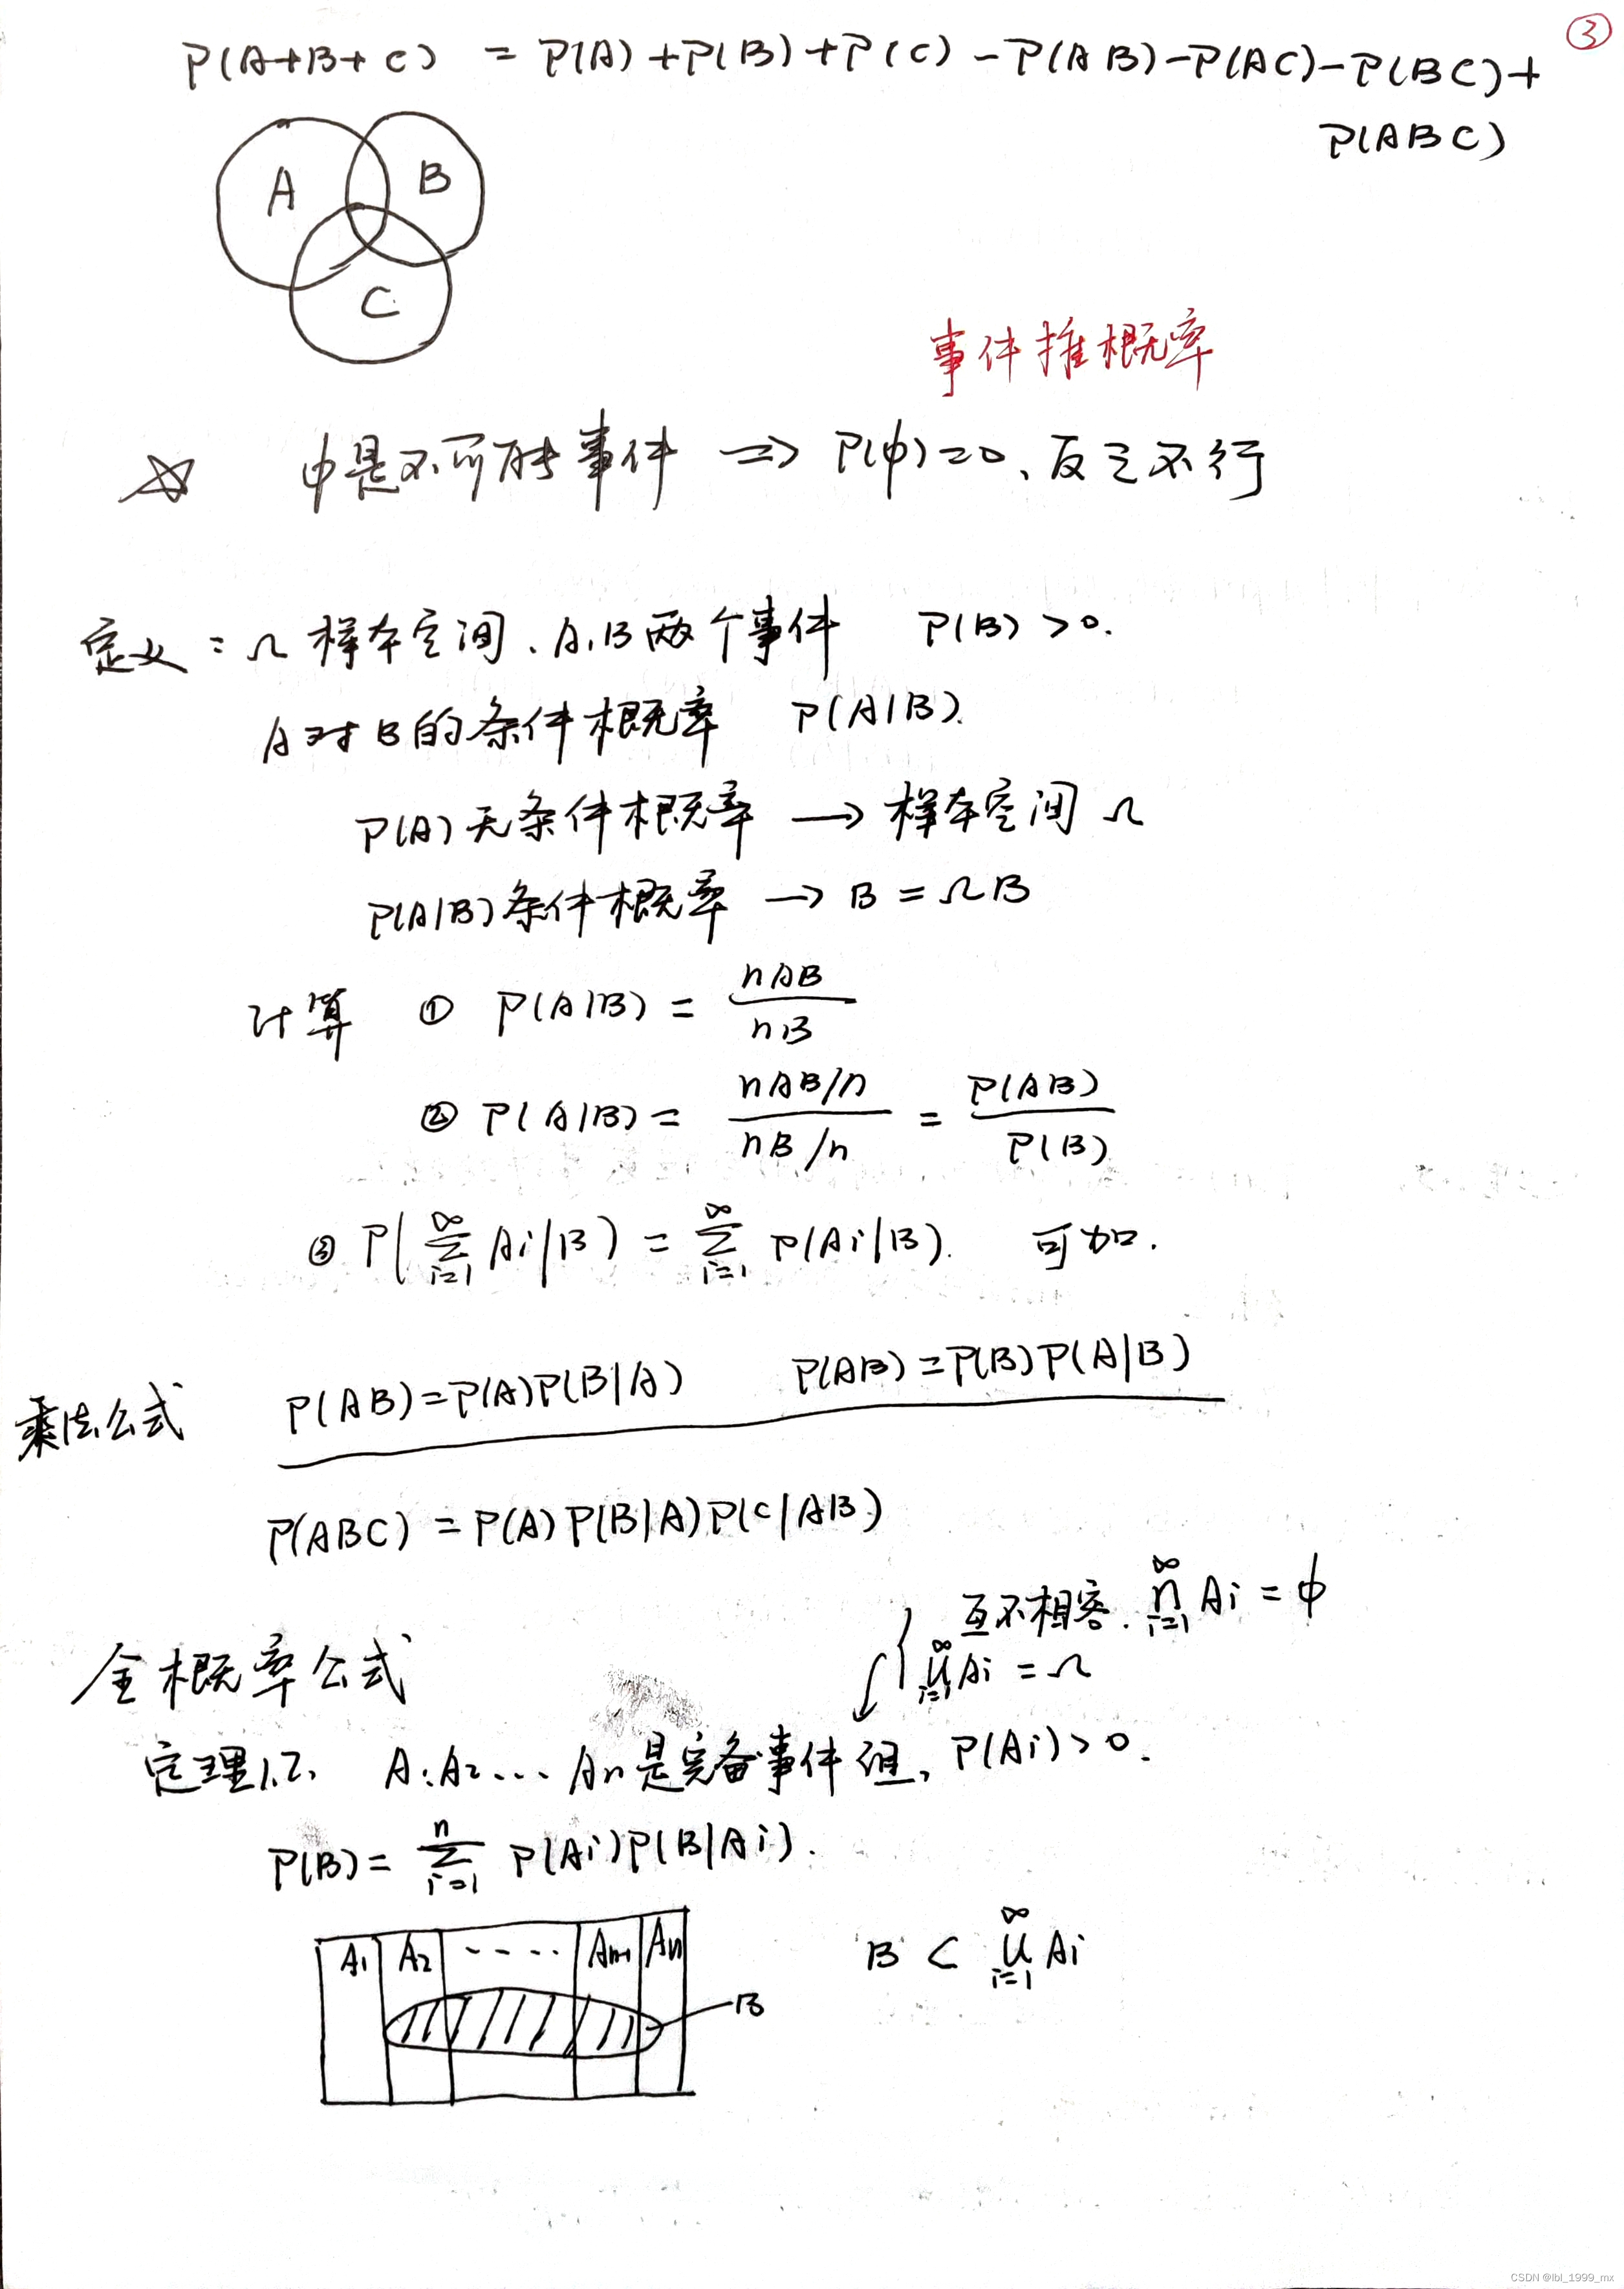 ③
P(A+B+C) = P(A)+P(B)+P(C)-P(AB)-P(AC)-P(BC)+
P(ABC)
A B
C
事件推概率
☆ φ是不可能事件 => P(φ)=0、反之不行
定义: Ω 样本空间、A,B两个事件 P(B)>0.
A对B的条件概率 P(A|B).
P(A)无条件概率 → 样本空间 Ω
P(A|B)条件概率 → B = ΩB
计算 ① P(A|B) = nAB / nB
② P(A|B) = (nAB/n) / (nB/n) = P(AB) / P(B)
③ P(∑_{i=1}^{∞} Ai|B) = ∑_{i=1}^{∞} P(Ai|B). 可加.
乘法公式 P(AB)=P(A)P(B|A) P(AB)=P(B)P(A|B)
P(ABC) = P(A)P(B|A)P(C|AB)
互不相容. ∩_{i=1}^{∞} Ai = φ
全概率公式 ∪_{i=1}^{∞} Ai = Ω
定理1.2. A1A2... An是完备事件组, P(Ai)>0.
P(B) = ∑_{i=1}^{n} P(Ai)P(B|Ai).
A1 A2 ···· An-1 An
B ⊂ ∪_{i=1}^{∞} Ai
B
CSDN @lbl_1999_mx